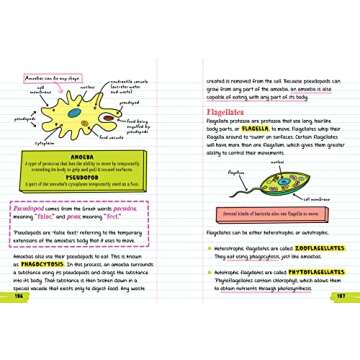 Amoebas can be any shape
cell
membrane
nucleus
contractile vacuole
(excretes water
and waste)
pseudopods
pseudopod
food
food being
engulfed by
pseudopods
cytoplasm
AMOEBA
A type of protozoa that has the ability to move by temporarily
extending its body to grip and pull itself around surfaces.
PSEUDOPOD
A part of the amoeba's cytoplasm temporarily used as a foot.
Pseudopod comes from the Greek words pseudes,
meaning "false," and pous, meaning "feet."
Pseudopods are "false feet" referring to the temporary
extensions of the amoeba's body that it uses to move.
Amoebas also use their pseudopods to eat. This is known
as PHAGOCYTOSIS. In this process, an amoeba surrounds
a substance using its pseudopods and drags the substance
into its body. That substance is then broken down in a
special vacuole that exists only to digest food. Any waste
186
created is removed from the cell. Because pseudopods can
grow from any part of the amoeba, an amoeba is also
capable of eating with any part of its body.
Flagellates
Flagellate protozoa are protozoa that use long, hairlike
body parts, or FLAGELLA, to move. Flagellates whip their
flagella around to "swim" on surfaces. Certain flagellates
will have more than one flagellum, which gives them greater
ability to control their movements.
nucleus
flagellum
cell membrane
Several kinds of bacteria also use flagella to move.
Flagellates can be either heterotrophic or autotrophic.
Heterotrophic flagellates are called ZOOFLAGELLATES.
They eat using phagocytosis, just like amoebas.
Autotrophic flagellates are called PHYTOFLAGELLATES.
Phytoflagellates contain chlorophyll, which allows them
to obtain nutrients through photosynthesis.
187